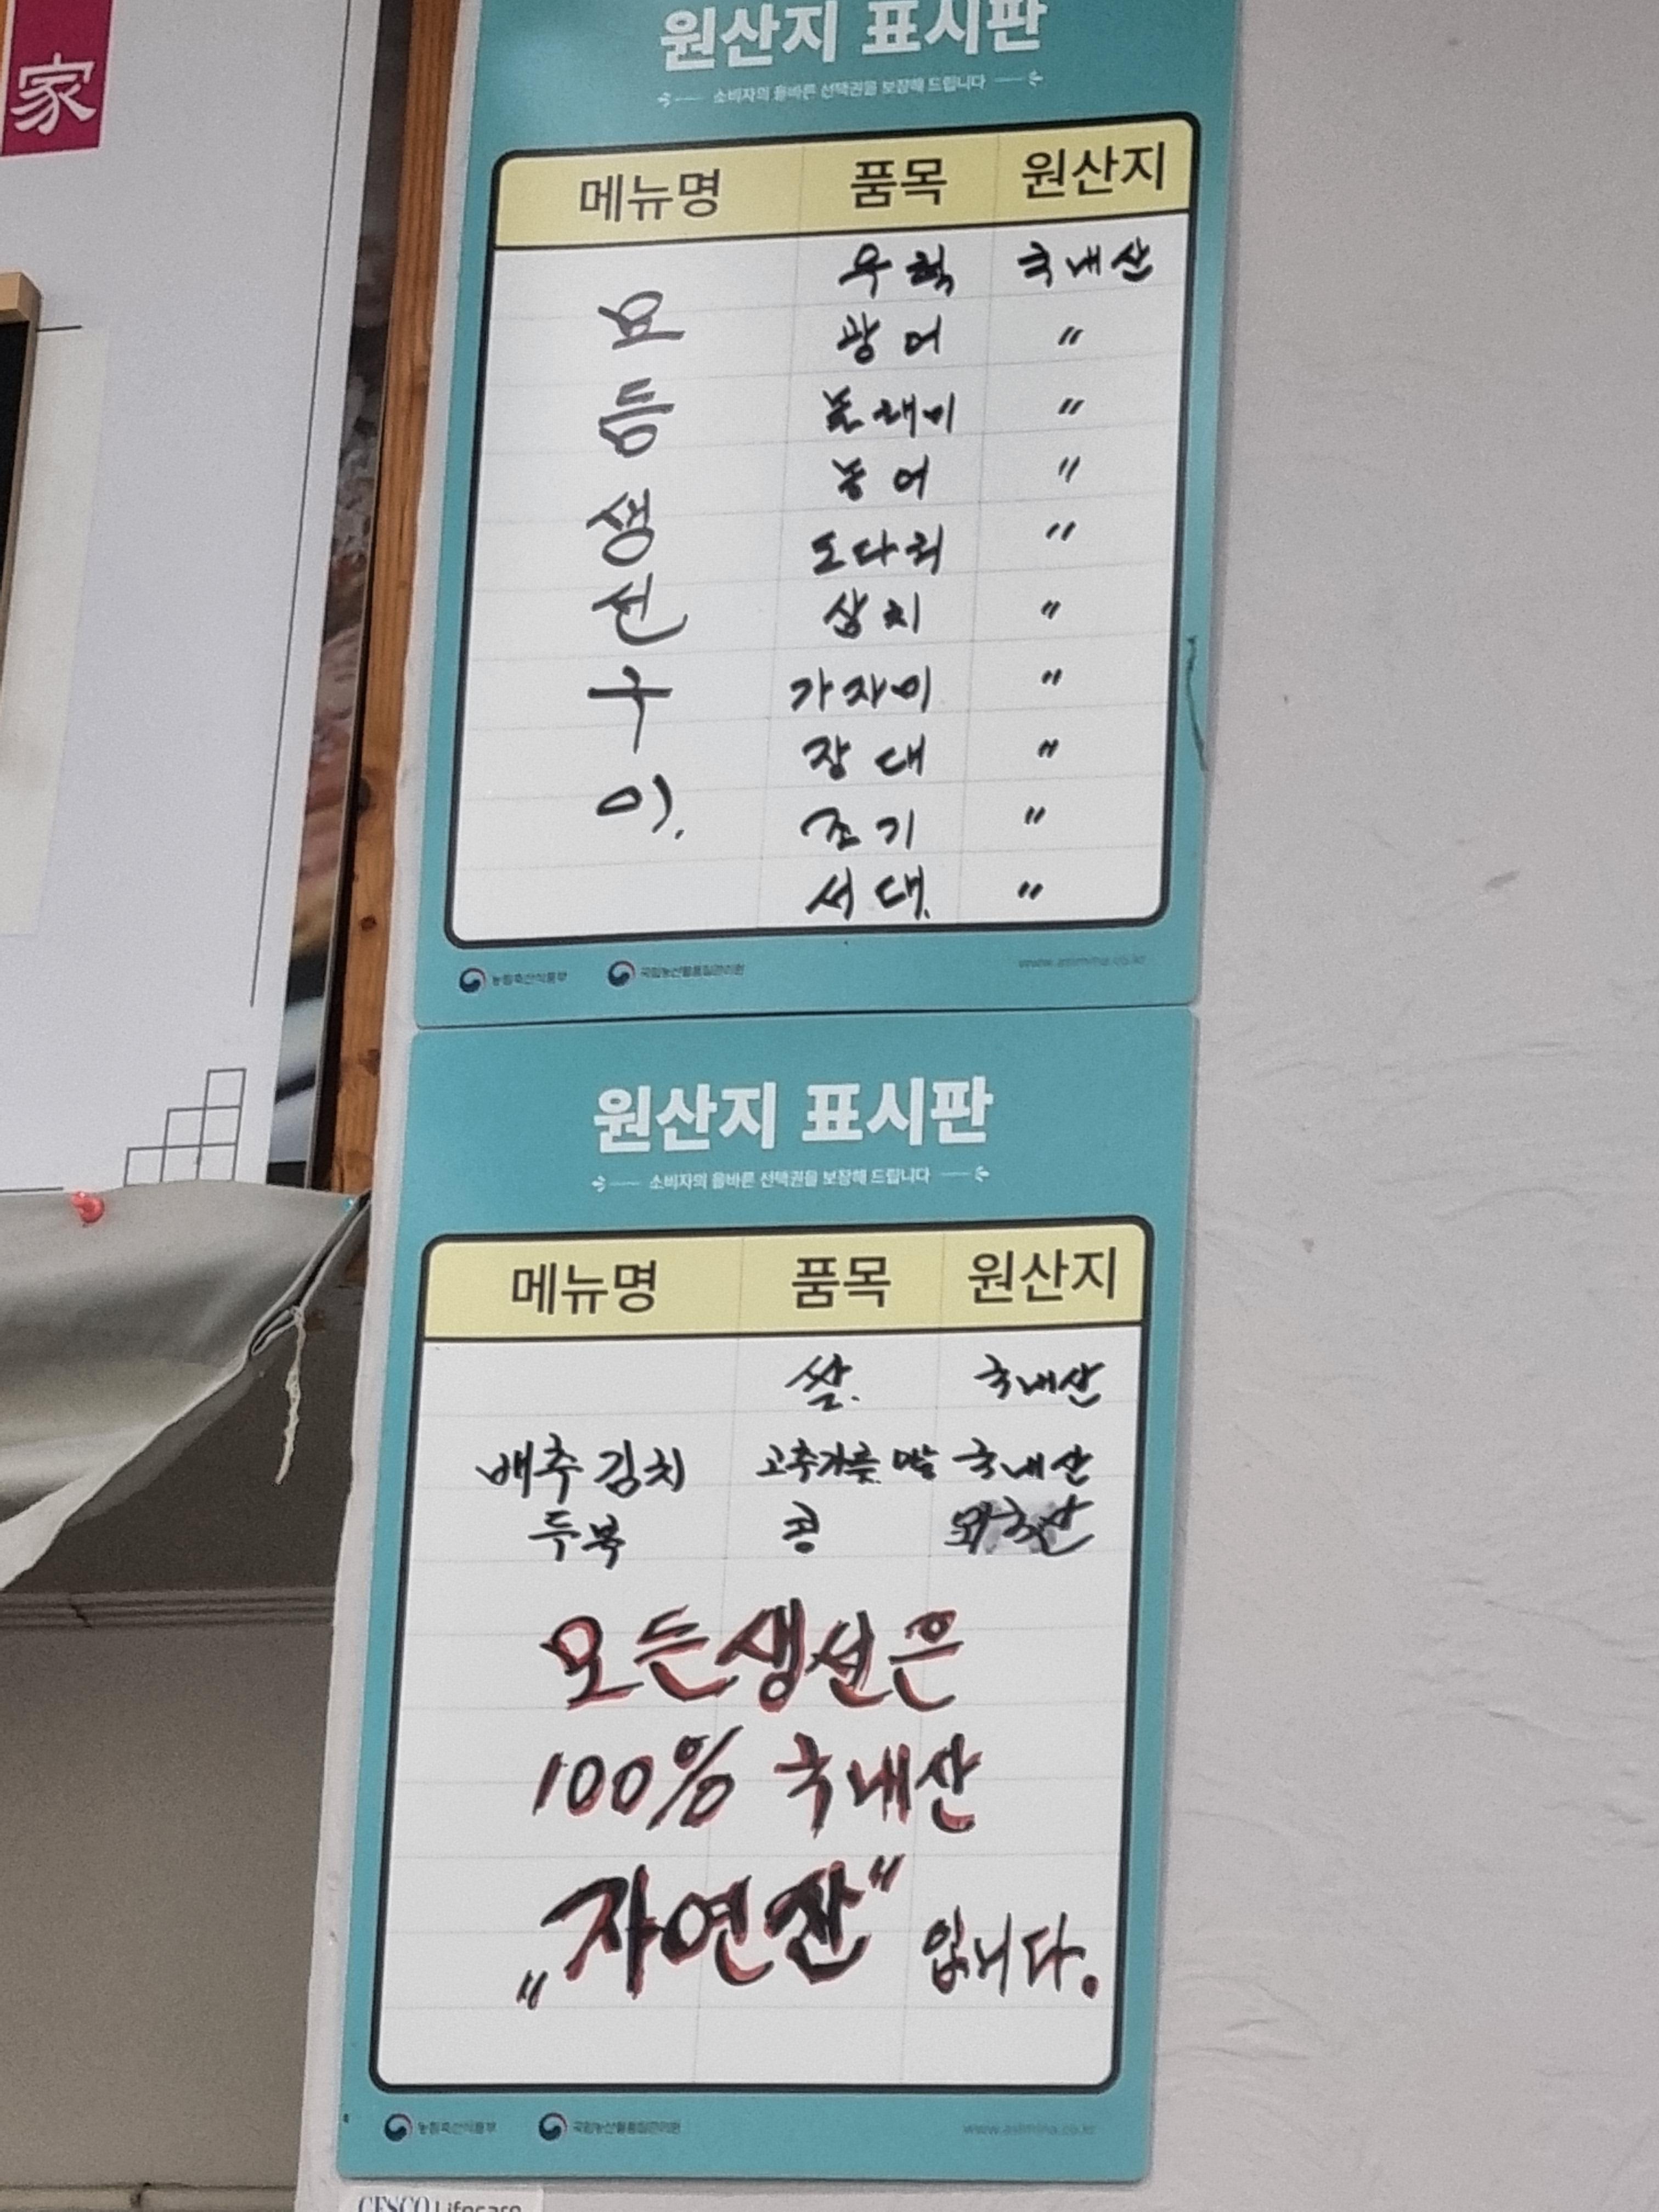 家
원산지 표시판
소비자의 올바른 선택권을 보장해 드립니다
메뉴명 품목 원산지
모듬생선구이.
우럭 국내산
광어 〃
놀래미 〃
농어 〃
도다리 〃
삼치 〃
가자미 〃
장대 〃
조기 〃
서대. 〃
농림축산식품부 국립농산물품질관리원
원산지 표시판
소비자의 올바른 선택권을 보장해 드립니다
메뉴명 품목 원산지
쌀. 국내산
배추김치 고추가루. 마늘 국내산
두부 콩 외국산
모든생선은
100% 국내산
"자연산" 입니다.
농림축산식품부 국립농산물품질관리원
CESCO Lifecare